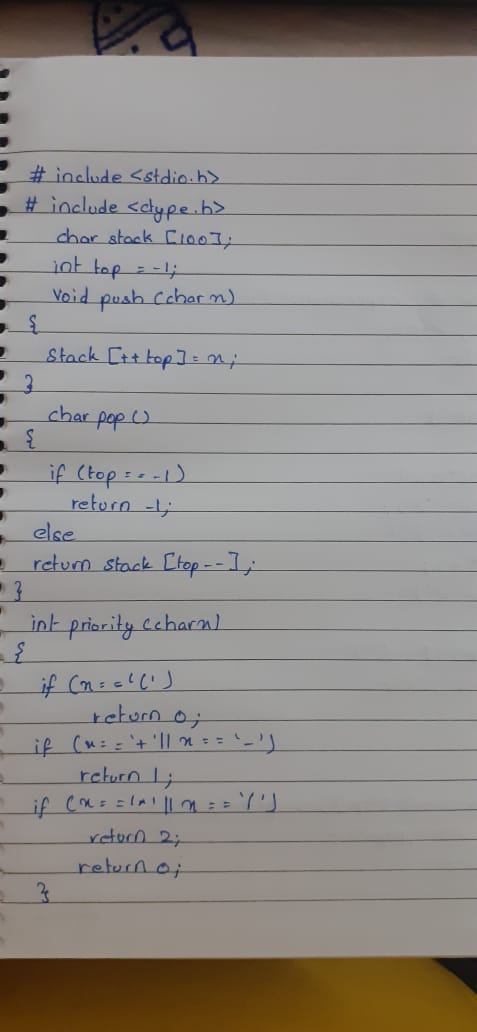 # include <stdio.h>
# include <ctype.h>
char stack [100];
int top = -1;
void push (char x)
{
stack [++top] = x;
}
char pop ()
{
if (top == -1)
return -1;
else
return stack [top--];
}
int priority (char x)
{
if (x == '(')
return 0;
if (x == '+' || x == '-')
return 1;
if (x == '*' || x == '/')
return 2;
return 0;
}